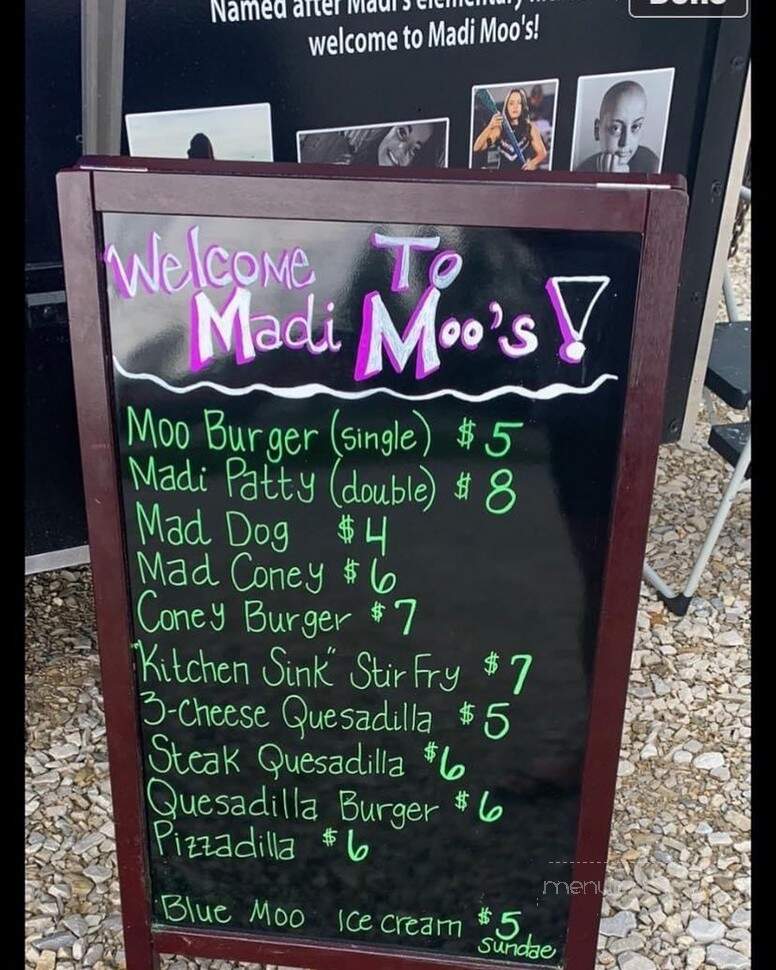 Named after Madi's elementary
welcome to Madi Moo's!
Welcome To
Madi Moo's!
Moo Burger (single) $5
Madi Patty (double) $8
Mad Dog $4
Mad Coney $6
Coney Burger $7
"Kitchen Sink" Stir Fry $7
3-Cheese Quesadilla $5
Steak Quesadilla $6
Quesadilla Burger $6
Pizzadilla $6
Blue Moo Ice cream $5
sundae